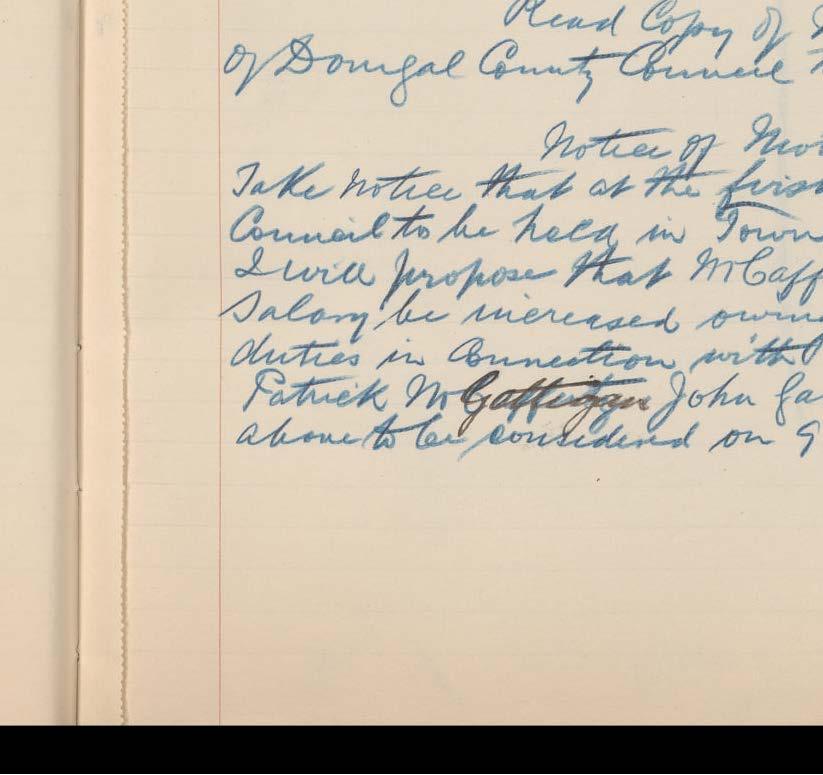 Read Copy of
of Donegal County Council
Notice of Mot
Take notice that at the first
Council to be held in Town
I will propose that McCaff
Salary be increased owin
duties in Connection with
Patrick Mc John Ga
above to be considered on 9